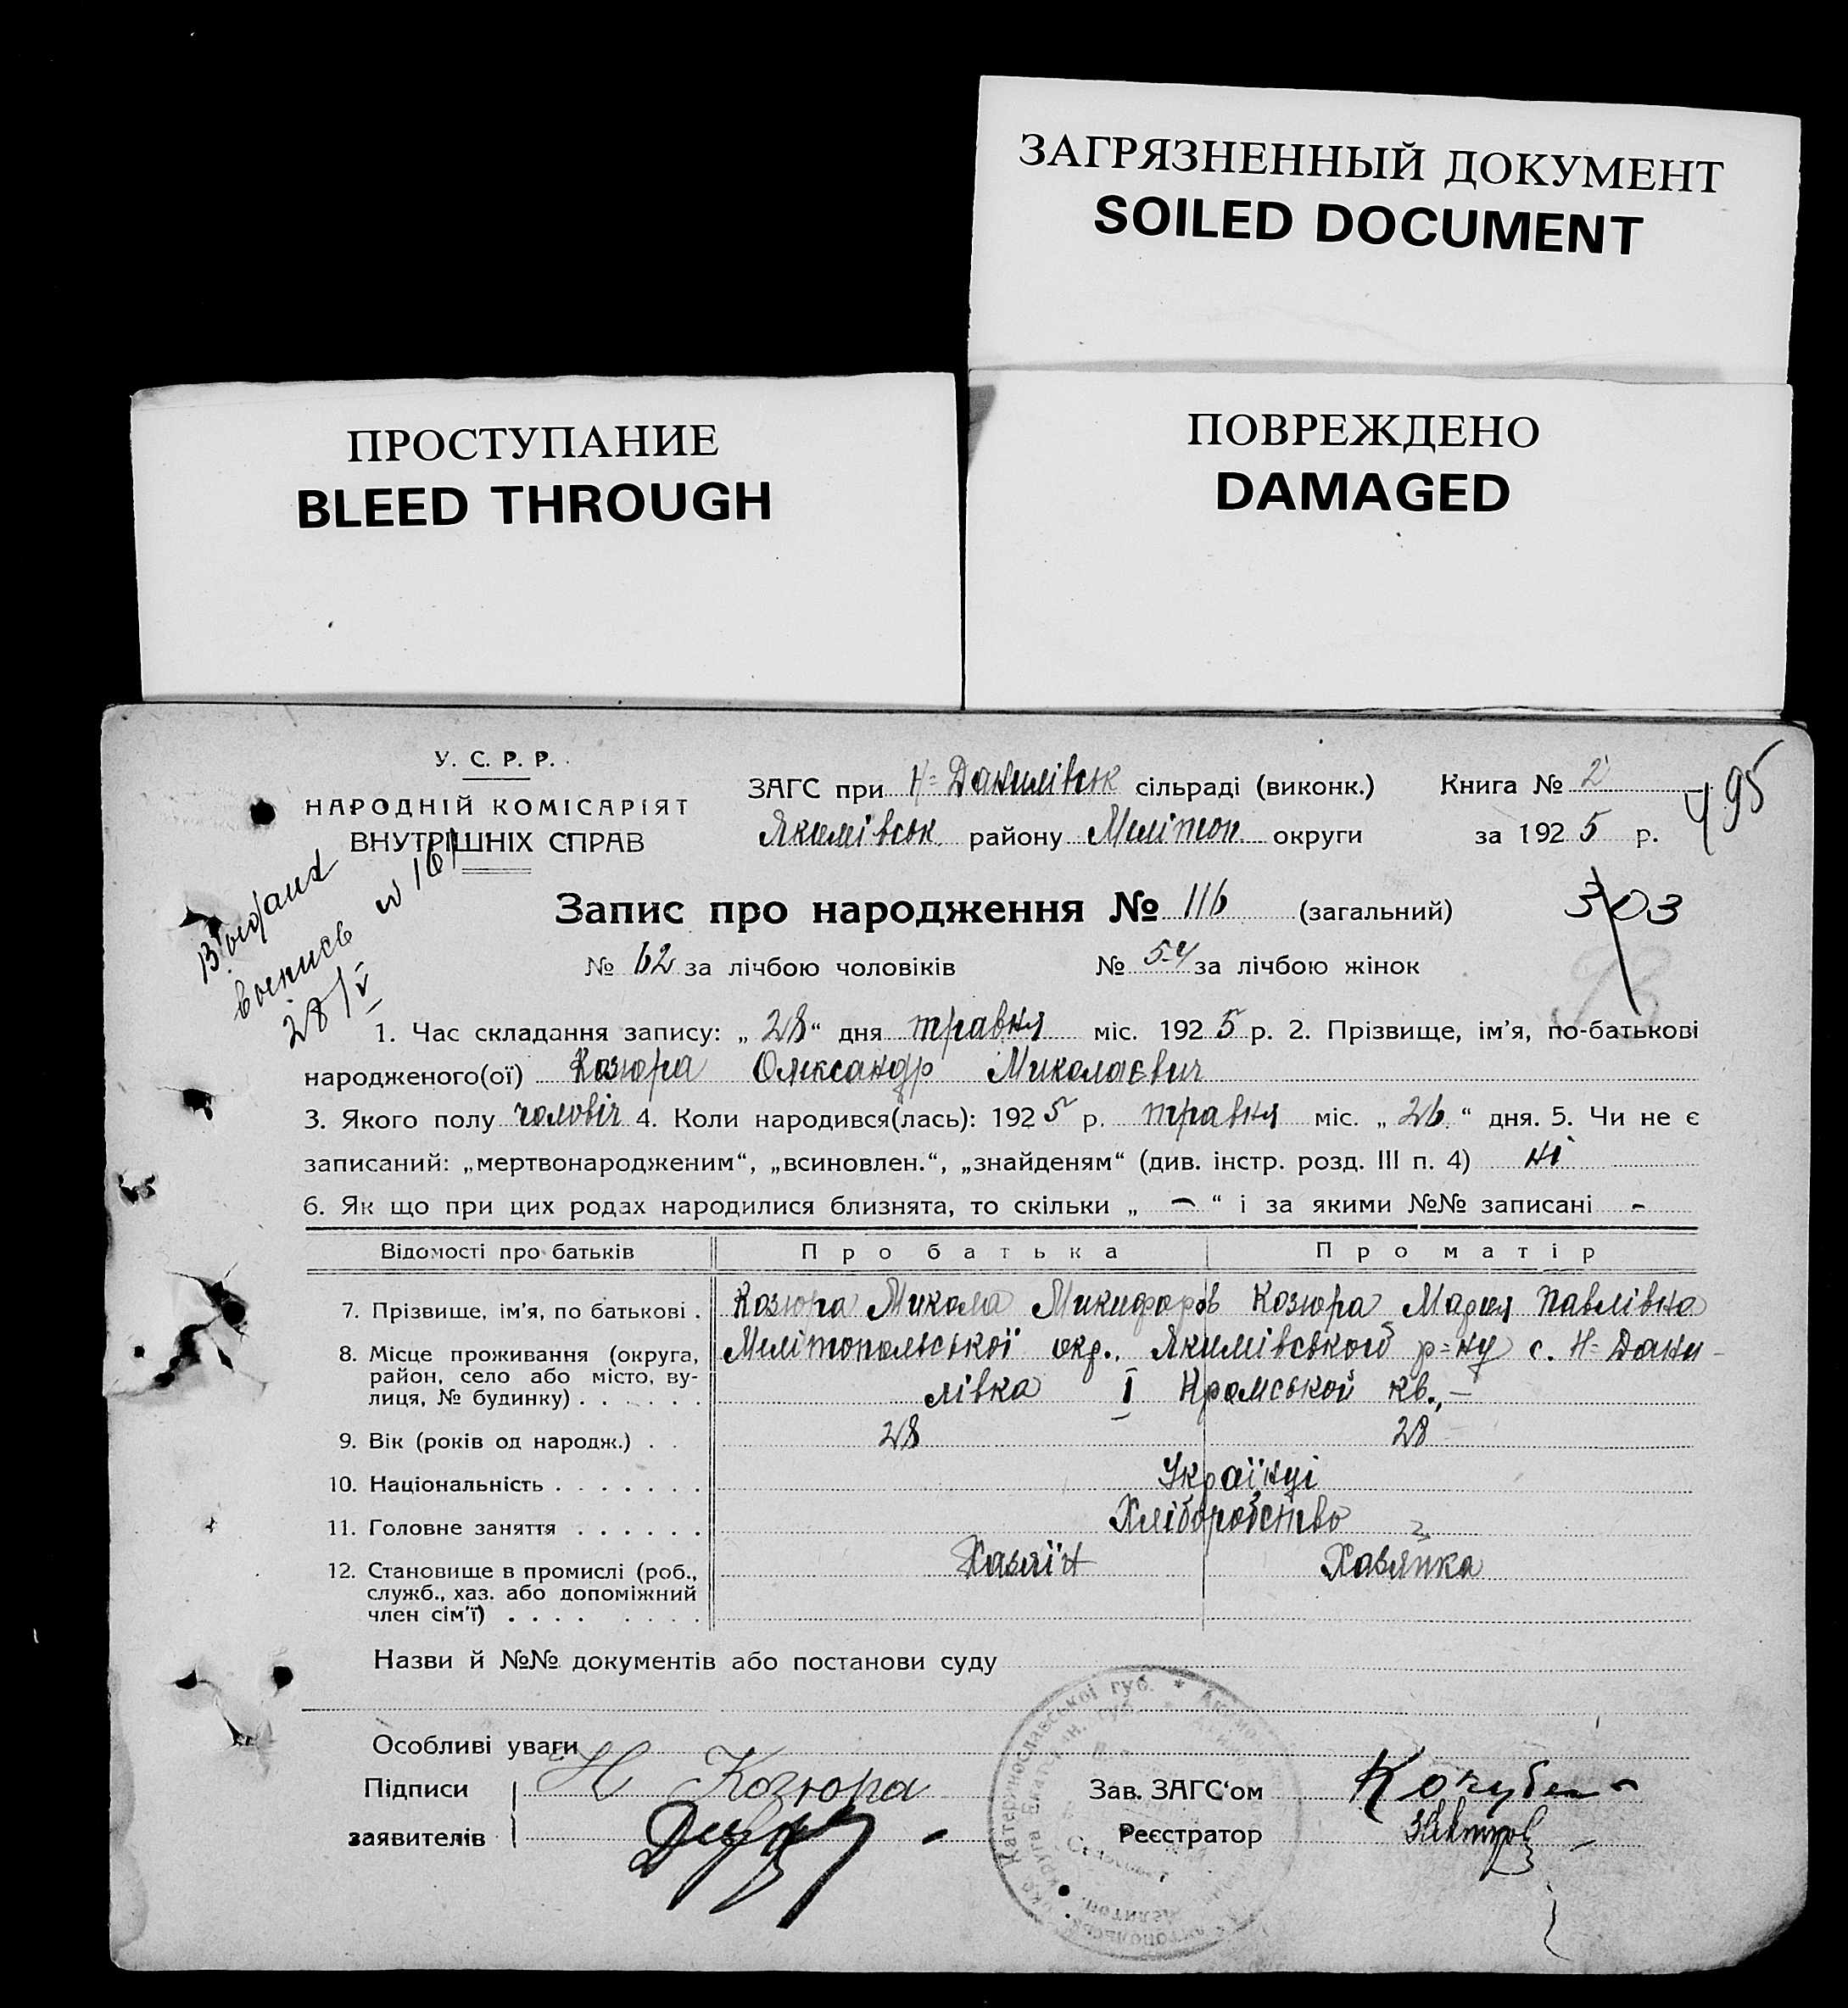 ЗАГРЯЗНЕННЫЙ ДОКУМЕНТ
SOILED DOCUMENT
ПРОСТУПАНИЕ
BLEED THROUGH
ПОВРЕЖДЕНО
DAMAGED
У. С. Р. Р.
НАРОДНІЙ КОМІСАРІЯТ
ВНУТРІШНІХ СПРАВ
ЗАГС при Н=Данилівськ сільраді (виконк.) Книга № 2
Якимівськ району Мелітоп. округи за 1925 р.
495
Видана
випись № 161
28/V
Запис про народження № 116 (загальний)
303
№ 62 за лічбою чоловіків № 54 за лічбою жінок
1. Час складання запису: „28“ дня травня міс. 1925 р. 2. Прізвище, ім’я, по-батькові
народженого(ої) Козюра Олександр Миколаєвич
3. Якого полу чоловіч 4. Коли народився(лась): 1925 р. травня міс. „26“ дня. 5. Чи не є
записаний: „мертвонародженим“, „всиновлен.“, „знайденям“ (див. інстр. розд. III п. 4) ні
6. Як що при цих родах народилися близнята, то скільки „ – “ і за якими №№ записані -
Відомості про батьків Про батька Про матір
7. Прізвище, ім’я, по батькові . Козюра Микола Микифоров Козюра Мария Павлівна
8. Місце проживання (округа, Мелітопольської окр., Якимівського р=ну с. Н=Дани-
район, село або місто, ву-
лиця, № будинку) . . . . . . лівка І Кромської кв., —
9. Вік (років од народж.) . . 28 28
10. Національність . . . . . . . Українці
11. Головне заняття . . . . . . Хліборобство
12. Становище в промислі (роб., Хазяїн Хазяйка
служб., хаз. або допоміжний
член сім’ї) . . . . . . . .
Назви й №№ документів або постанови суду
Особливі уваги
Підписи Н Козюра Зав. ЗАГС‘ом Кочубей
заявителів Реєстратор
Катеринославської губ.